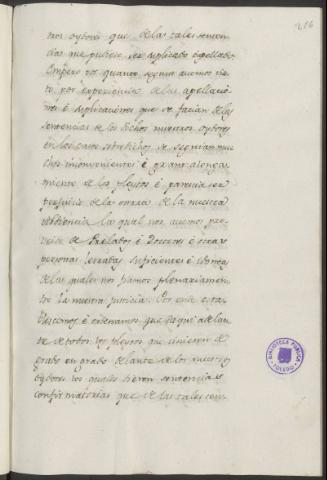 216
tros oydores que de las tales senten-
cias no pudiese ser suplicado o apellado.
Empero por quanto segund avemos vis-
to por experiencia de las apellacio-
nes é suplicaciones que se facian de las
sentencias de los dichos nuestros oydores
en los casos sobredichos se seguian mu-
chos inconvenientes é grand alonga-
miento de los pleytos é parescia ser
perjuicio de la onrra de la nuestra
abdiencia la qual nos avemos pro-
veido de Perlados é Doctores é otras
personas letradas suficientes é idoneas
de las quales nos fiamos plenariamen-
te la nuestra justicia. Por ende esta-
blescemos é ordenamos que de aqui adelan-
te de todos los pleytos que vinieren de
grado en grado delante de los nuestros
oydores los quales dieren sentencias
confirmatorias que de las tales sen-
BIBLIOTECA PUBLICA
TOLEDO